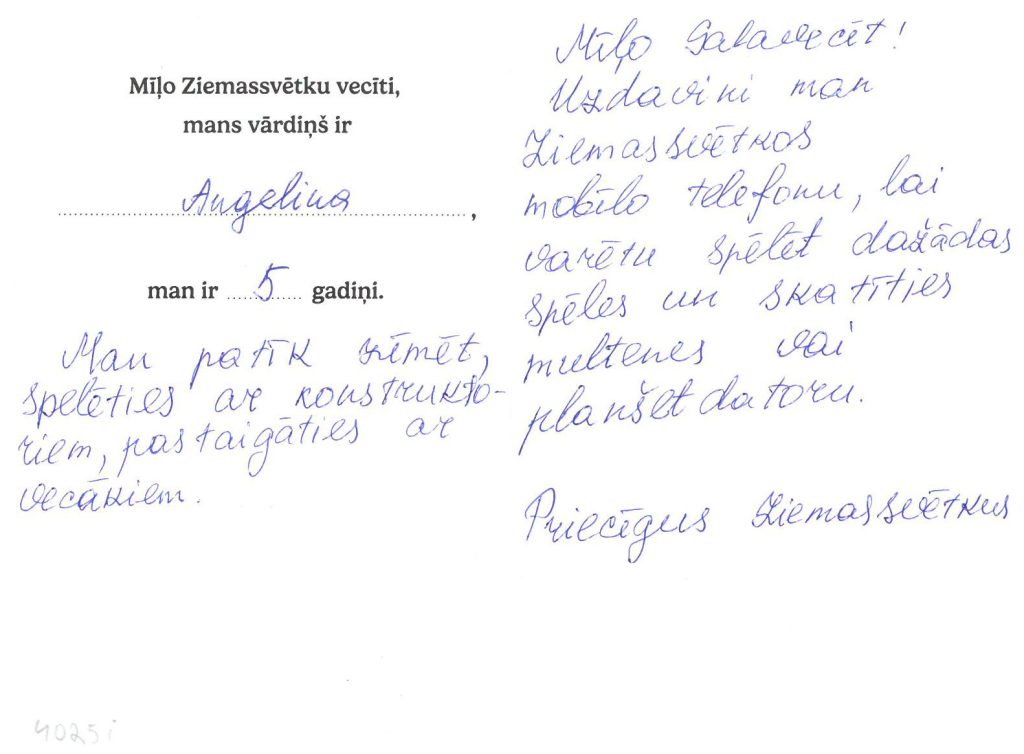 Mīļo Ziemassvētku vecīti,
mans vārdiņš ir
Angelina,
man ir 5 gadiņi.
Man patīk zīmēt,
spēlēties ar konstrukto-
riem, pastaigāties ar
vecākiem.
Mīļo Salavecīt!
Uzdavini man
Ziemassvētkos
mobīlo telefonu, lai
varētu spēlēt dažādas
spēles un skatīties
multenes vai
planšetdatoru.
Priecīgus Ziemassvētkus
4025i